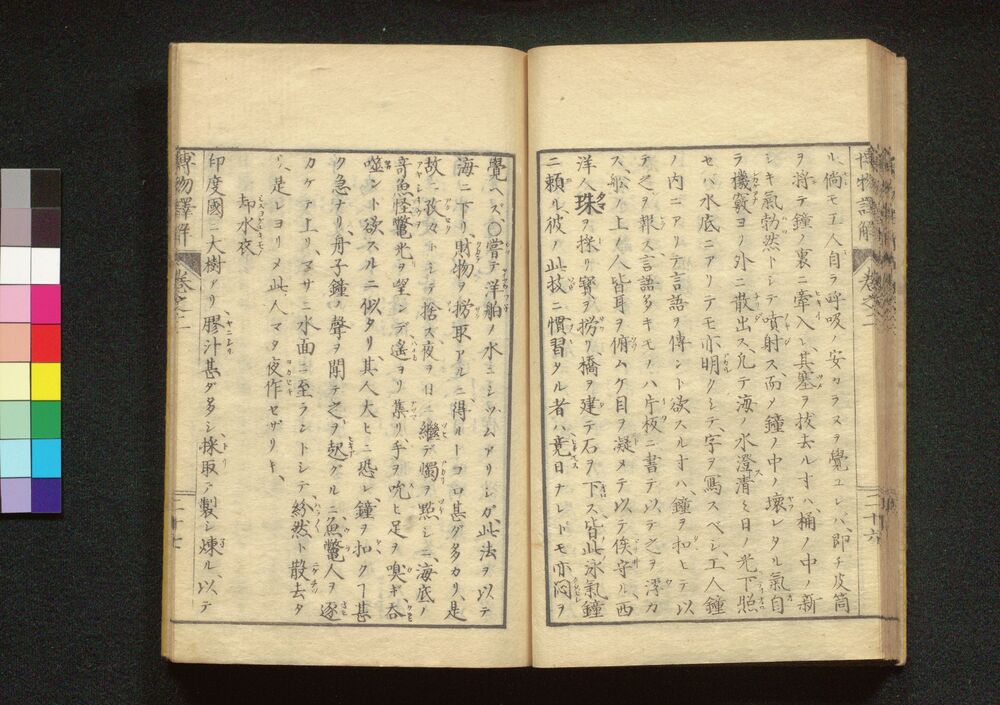 ル、倘モ工人自ラ呼吸ノ安カラヌヲ覺ユレバ、即チ皮筒
ヲ將テ鐘ノ裏ニ牽入レ其塞ヲ拔去ルオハ、桶ノ中ノ新
シキ氣勃然トシテ噴射ス而メ鐘ノ中ノ壊レタル氣自
ラ機竅ヨリ外ニ散出ス、凢テ海ノ水澄清ミ日ノ光下照
セバ水底ニアリテモ亦明クシテ、字ヲ寫スベシ、工人鐘
ノ内ニアリテ言語ヲ傳ント欲スルオハ、鐘ヲ扣ヒテ以
テ之ヲ報ス言語多キモノハ片板ニ書テ以テ之ヲ浮カ
ス、舩ノ上ノ人皆耳ヲ俯ムケ目ヲ凝メテ以テ俟守ル、西
洋人珠ヲ探リ寳ヲ撈リ橋ヲ建テ石ヲ下ス皆此泳氣鐘
ニ頼ル彼ノ此技ニ慣習タル者ハ竟日ナレドモ亦悶ヲ
博物譯解
卷之二
二十六
覺ヘズ、〇嘗テ洋舶ノ水ニシヅムアリシガ、此法ヲ以テ
海ニ下リ、財物ヲ撈取アルニ、得ルトコロ甚ダ多カリ、是
故ニ孜々トシテ捨ズ、夜ヲ日ニ繼デ燭ヲ點シニ、海底ノ
奇魚怪鼈光ヲ望ンデ遙ヨリ集リ手ヲ吮ヒ足ヲ嗅ギ、呑
噬ント欲スルニ似タリ、其人大ヒニ恐レ鐘ヲ扣クヿ甚
ク急ナリ、舟子鐘ノ聲ヲ聞テ之ヲ起グルニ、魚鼈人ヲ逐
カケテ上リ、マサニ水面ニ至ラントシテ、紛然ト散去タ
リ、是レヨリメ此人マタ夜作セザリキ、
却水衣
印度國ニ大樹アリ膠汁甚ダ多シ採取ア製シ煉ル、以テ
博物譯解
卷之二
二十七